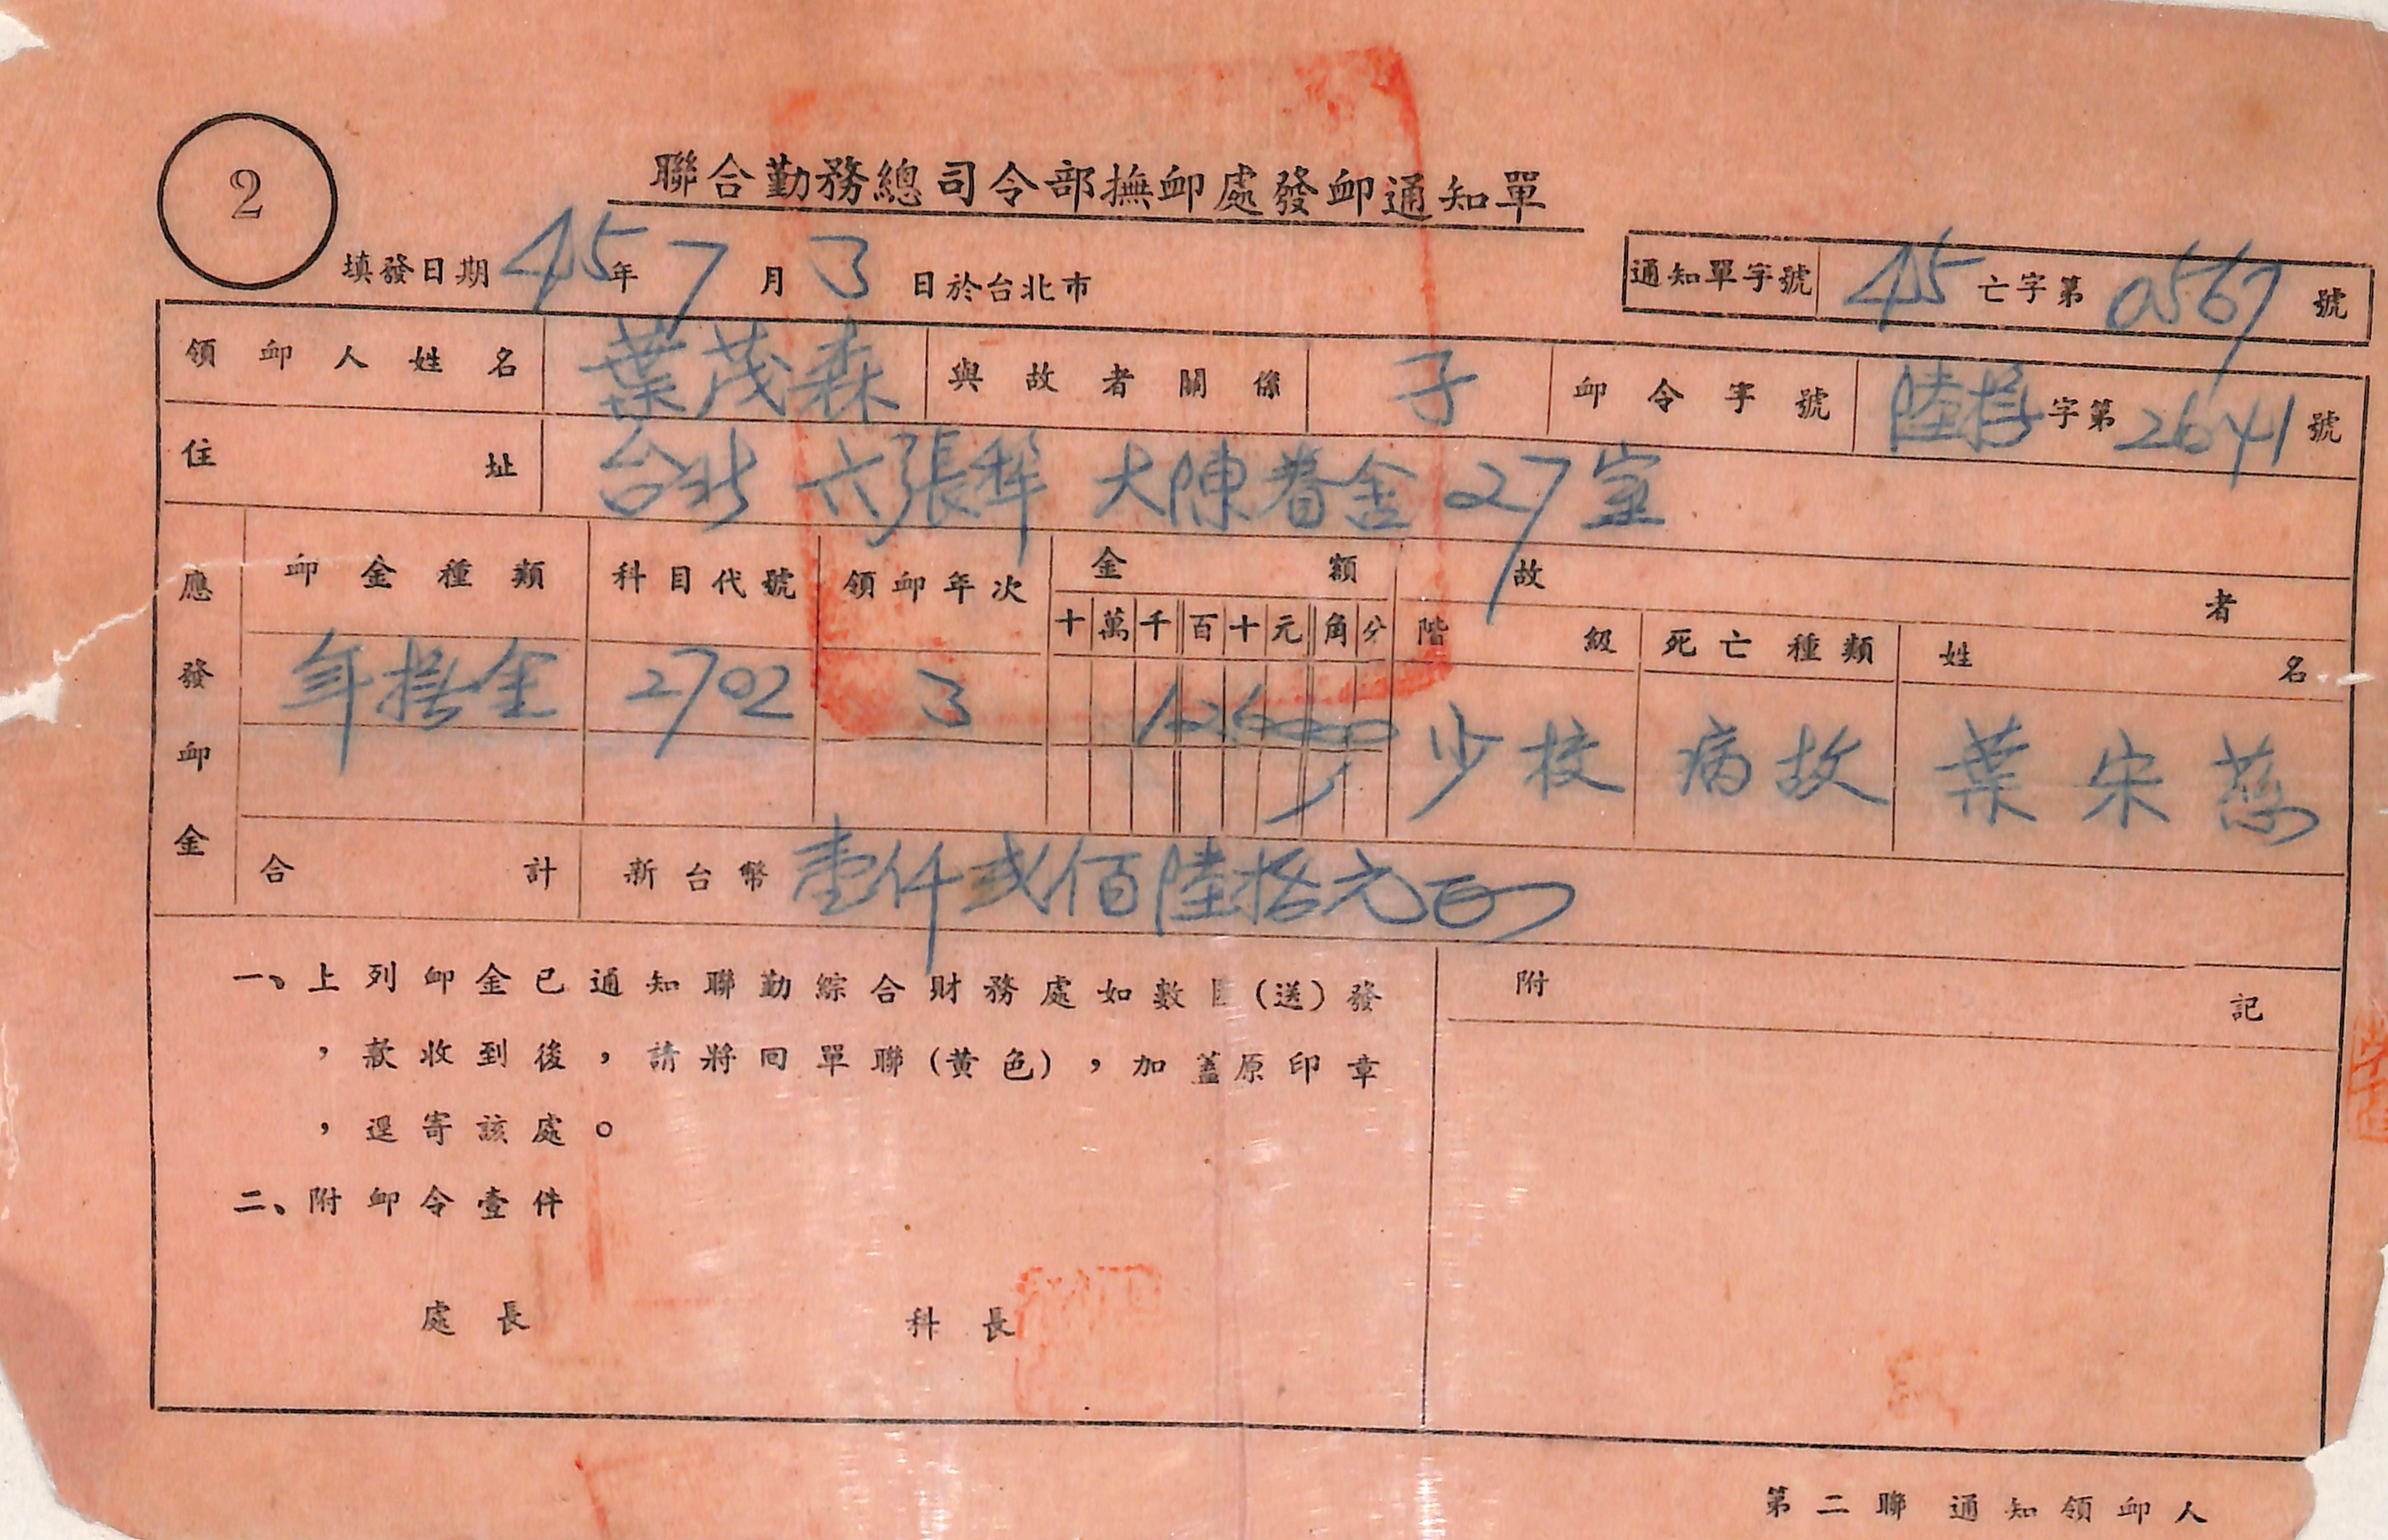 2
聯合勤務總司令部撫卹處發卹通知單
填發日期 45年 7 月 3 日於台北市
通知單字號 45 亡字第 0567 號
領卹人姓名 葉茂森 與故者關係 子 卹令字號 陸撫字第2641號
住址 台北 六張犂 大陳眷舍 27室
應發卹金
卹金種類 科目代號 領卹年次 金額 故者
十萬千百十元角分 階級 死亡種類 姓名
年撫金 2702 3 126000 少校 病故 葉宋慈
合計 新台幣 壹仟弍佰陸拾元
一、上列卹金已通知聯勤綜合財務處如數(送)發
，款收到後，請將回單聯(黃色)，加蓋原印章
，退寄該處。
二、附卹令壹件
附記
處長 科長
第二聯 通知領卹人